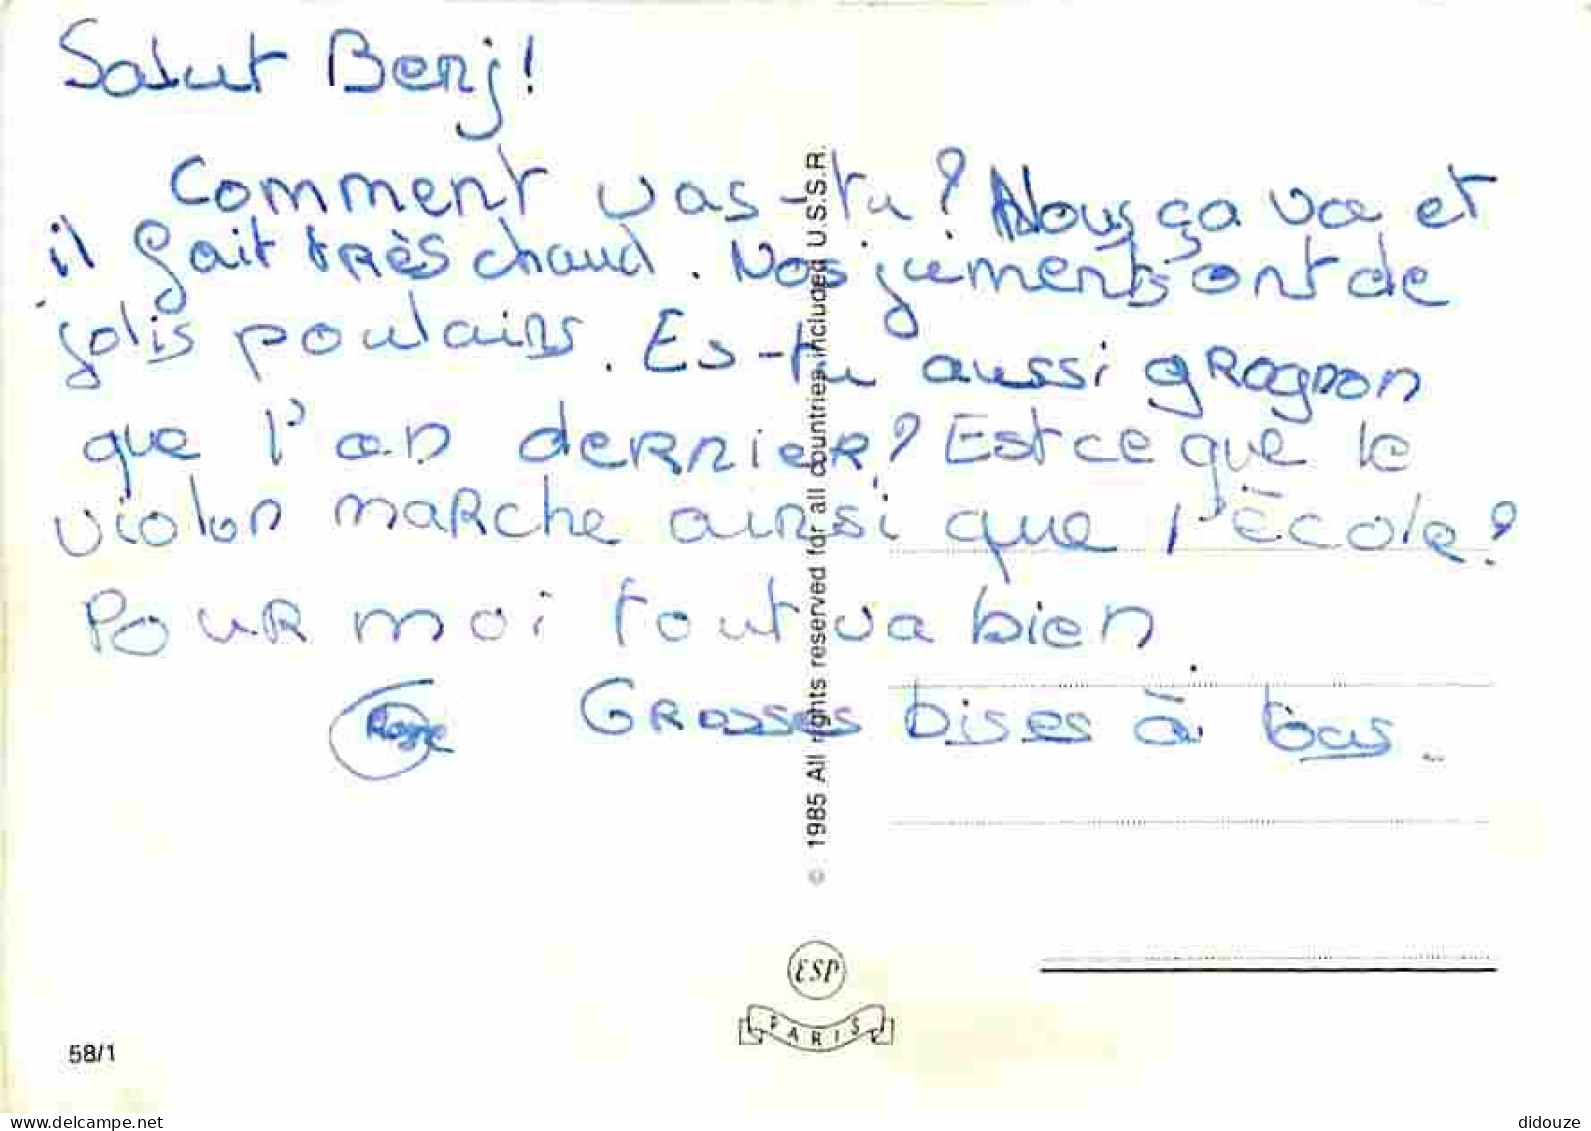 Salut Benj!
Comment vas-tu? Nous ça va et
il fait très chaud. Nos juments ont de
jolis poulains. Es-tu aussi grognon
que l'an dernier? Est ce que le
violon marche ainsi que l'école?
Pour moi tout va bien.
Grosses bises à tous.
© 1985 All rights reserved for all countries included U.S.S.R.
ESP
PARIS
58/1
www.delcampe.net
didouze